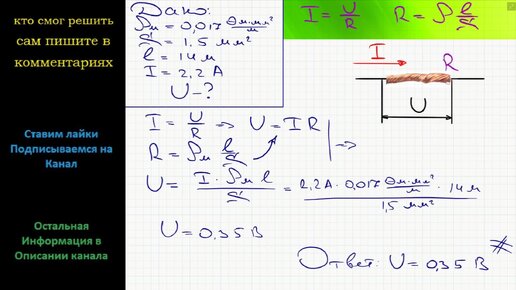 кто смог решить
сам пишите в
комментариях
Ставим лайки
Подписываемся на
Канал
Остальная
Информация в
Описании канала
Дано:
ρм = 0,017 Ом·мм²/м
S = 1,5 мм²
l = 14 м
I = 2,2 А
U - ?
I = U/R R = ρ l/S
I R
U
I = U/R => U = IR
R = ρм l/S =>
U = I · ρм l / S = 2,2А · 0,017 Ом·мм²/м · 14м / 1,5 мм²
U = 0,35 В
Ответ: U = 0,35 В